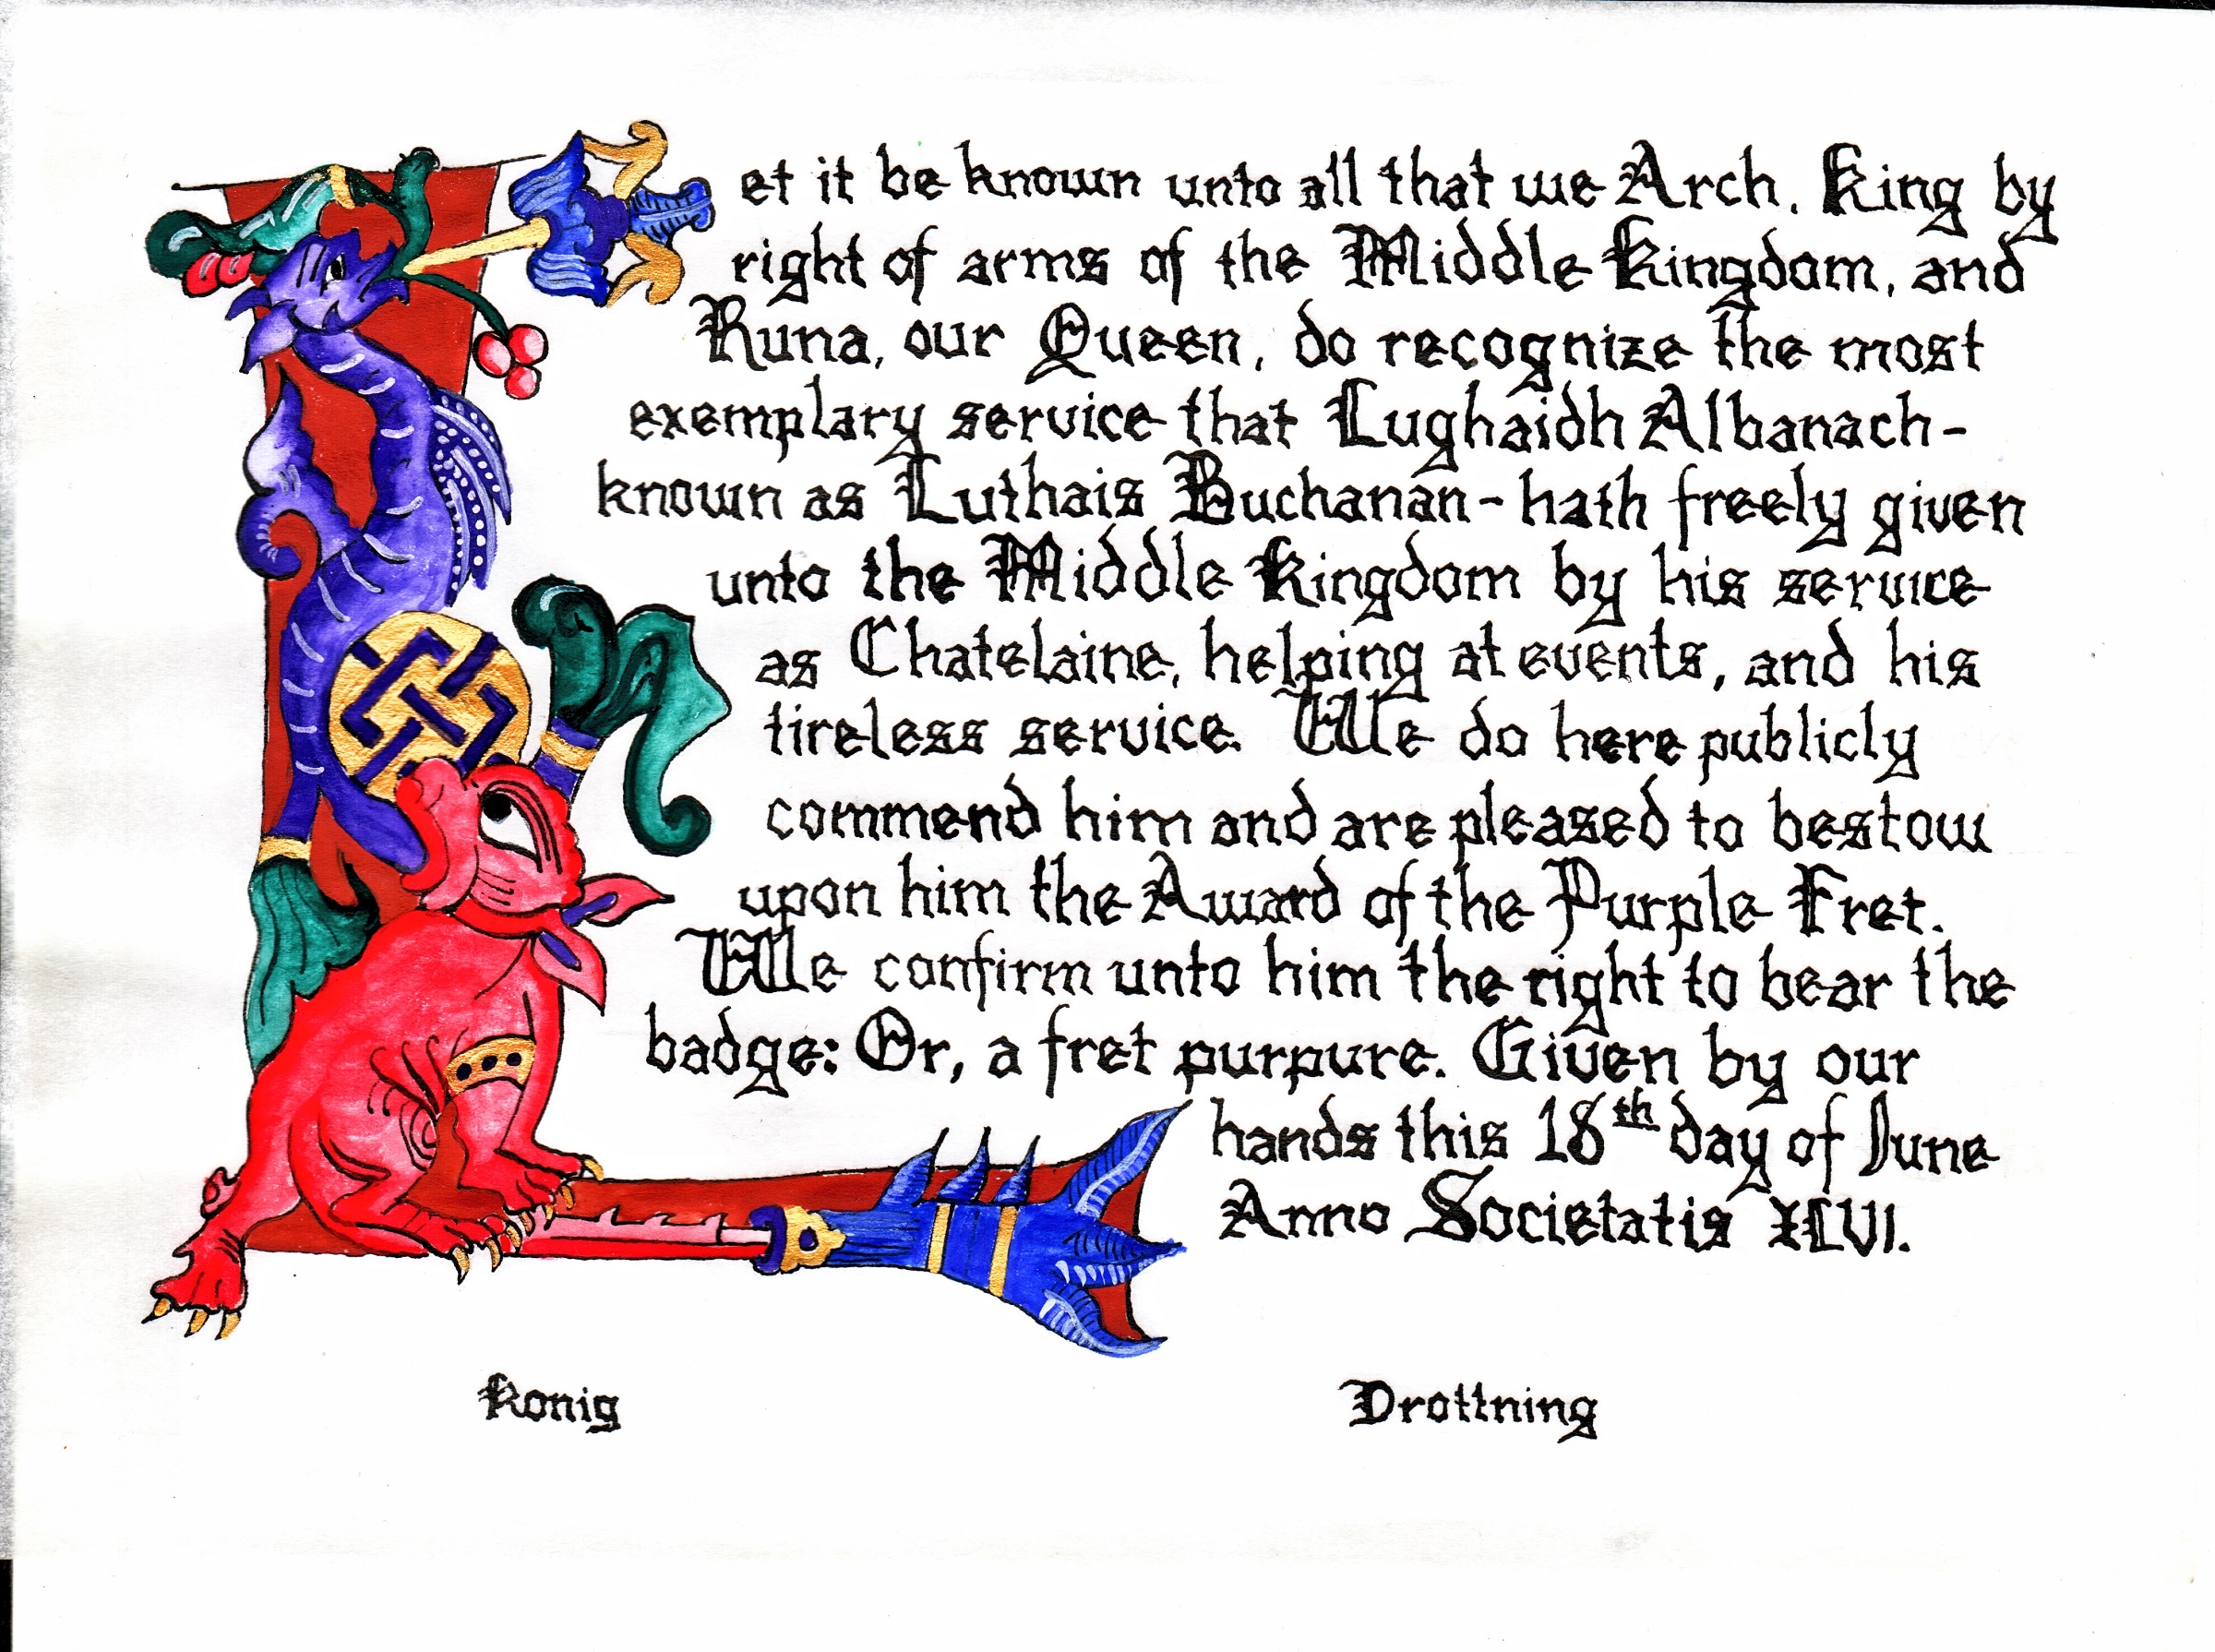 Let it be known unto all that we Arch, King by
right of arms of the Middle Kingdom, and
Runa, our Queen, do recognize the most
exemplary service that Lughaidh Albanach-
known as Luthais Buchanan-hath freely given
unto the Middle Kingdom by his service
as Chatelaine, helping at events, and his
tireless service. We do here publicly
commend him and are pleased to bestow
upon him the Award of the Purple Fret.
We confirm unto him the right to bear the
badge: Or, a fret purpure. Given by our
hands this 18th day of June
Anno Societatis XLVI.
Konig
Drottning